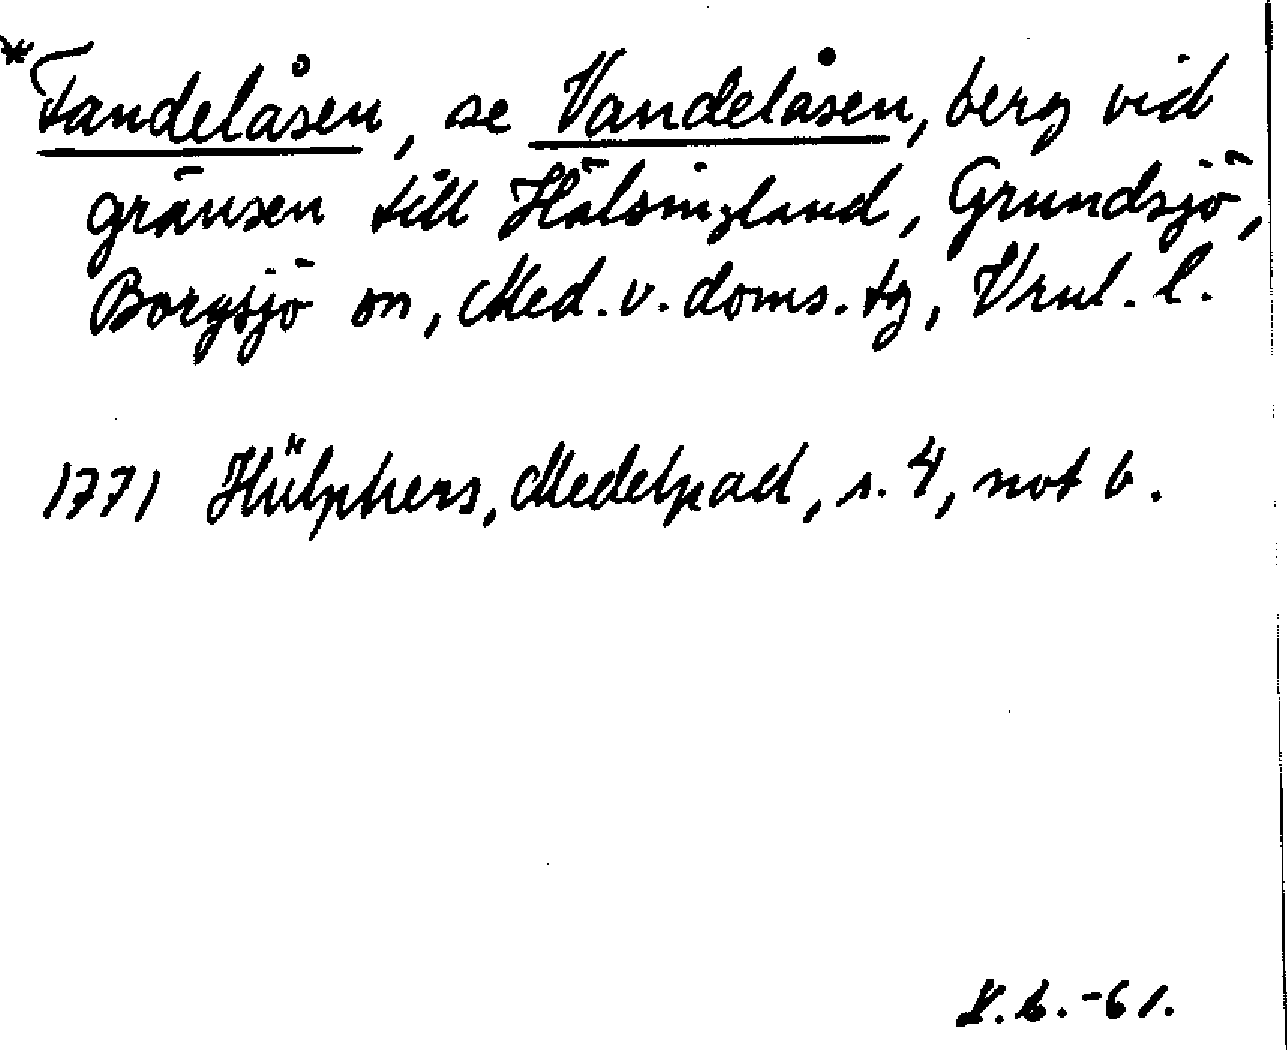 *Fandelåsen, se Vandelåsen, berg vid
gränsen till Hälsingland, Grundsjö,
Borgsjö sn, Med. v. doms. tg, Vrnl. l.
1771 Hülphers, Medelpad, s. 4, not b.
-61.